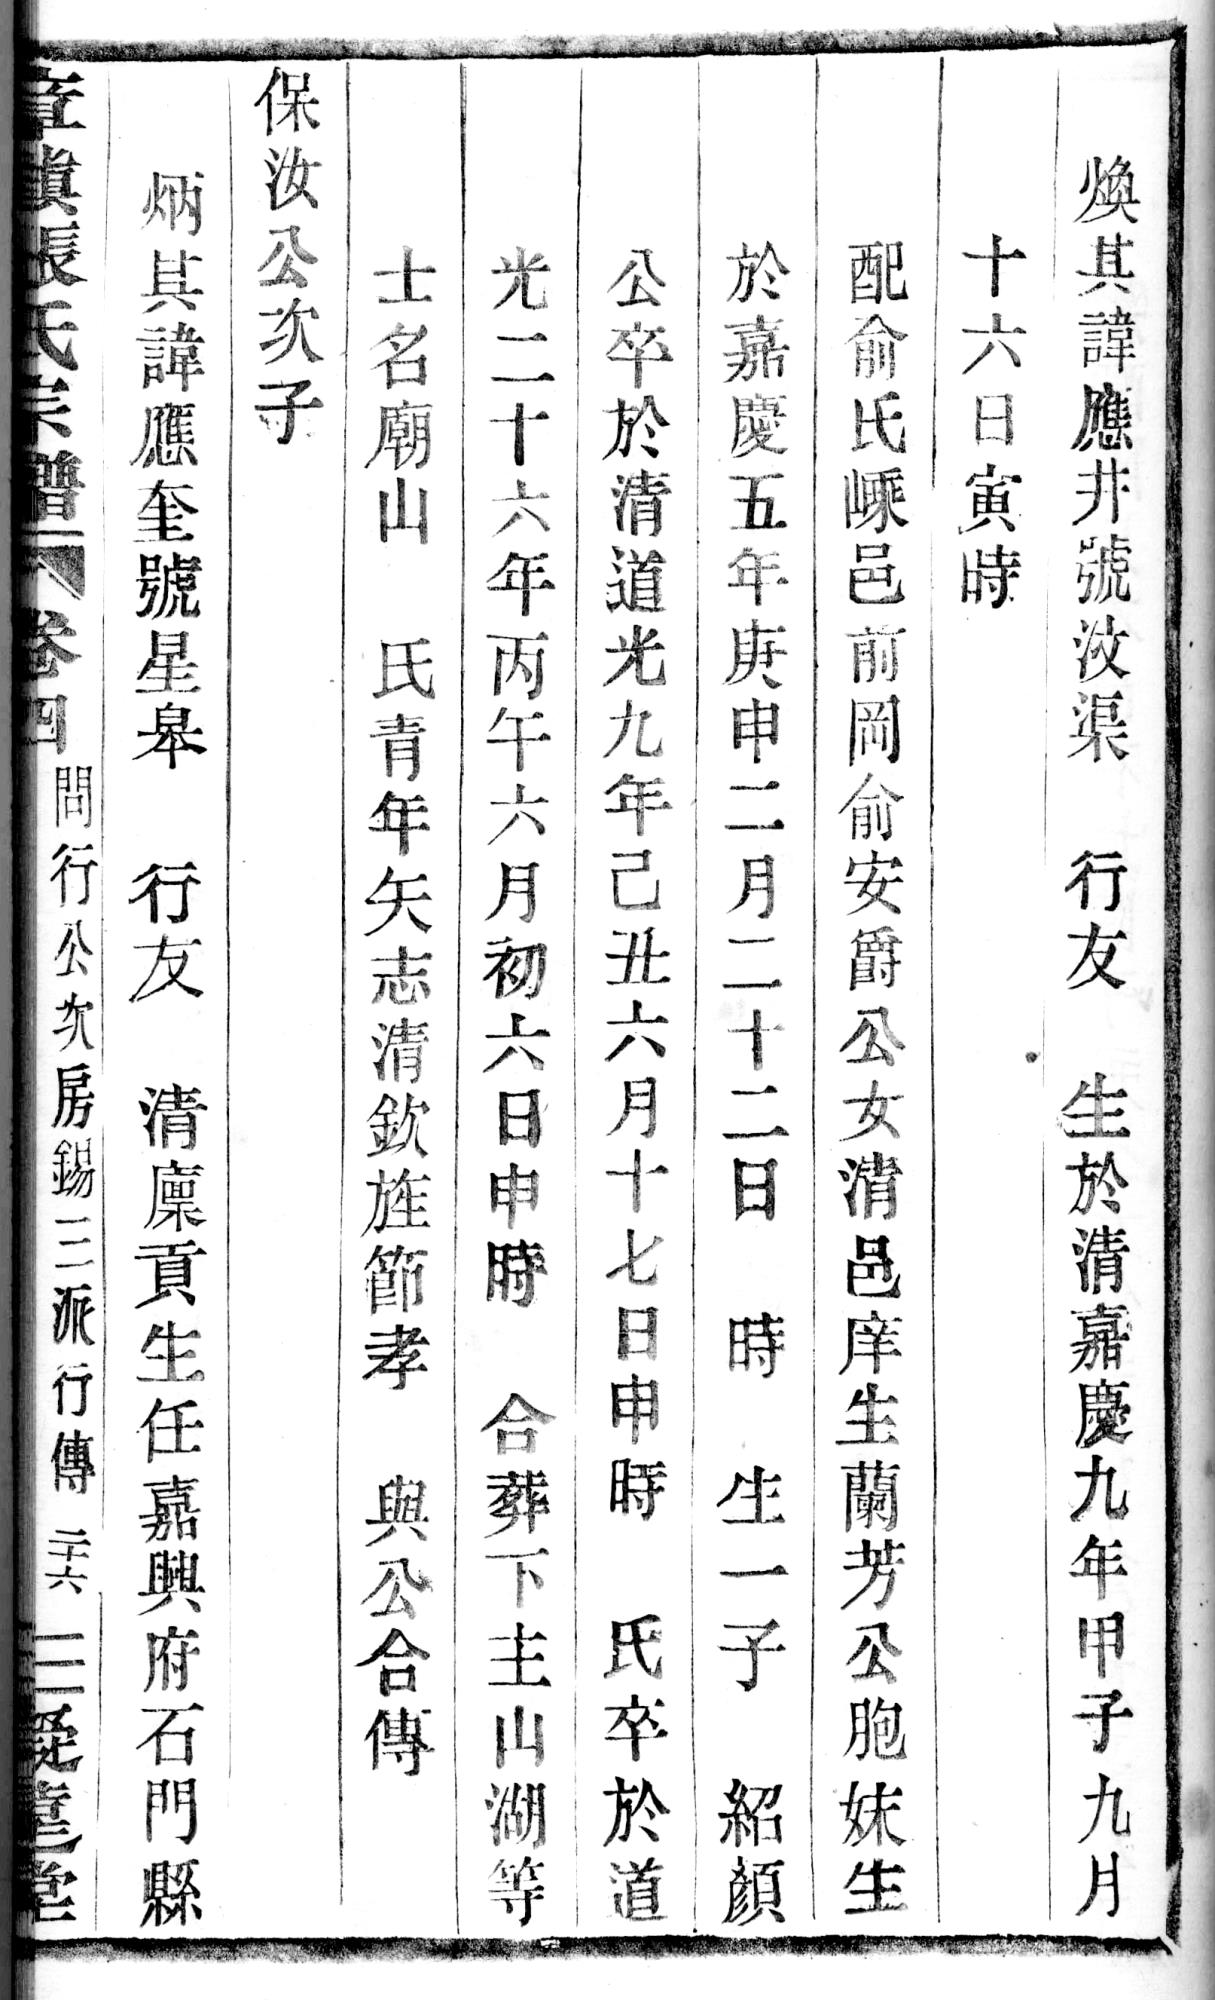 煥其諱應井號汝渠　行友　生於清嘉慶九年甲子九月
十六日寅時
配俞氏嵊邑前岡俞安爵公女清邑庠生蘭芳公胞妹生
於嘉慶五年庚申二月二十二日　時　生一子　紹顏
公卒於清道光九年己丑六月十七日申時　氏卒於道
光二十六年丙午六月初六日申時　合葬下主山湖等
士名廟山　氏青年矢志清欽旌節孝　與公合傳
保汝公次子
炳其諱應奎號星皋　行友　清廩貢生任嘉興府石門縣
張氏宗譜　卷四　問行公次房錫三派行傳　二十六　堂